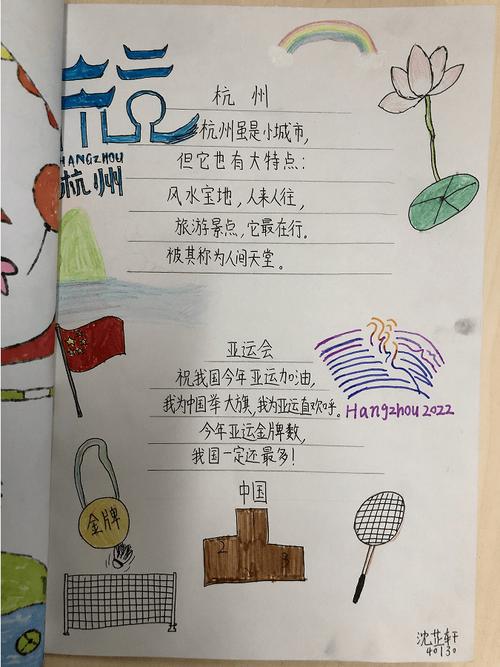 杭州
HANGZHOU
杭州
杭州虽是小城市，
但它也有大特点：
风水宝地，人来人往，
旅游景点，它最在行。
被其称为人间天堂。
亚运会
祝我国今年亚运加油，
我为中国举大旗，我为亚运直欢呼。
今年亚运金牌数，
我国一定还最多！
Hangzhou 2022
金牌
中国
2
3
40130